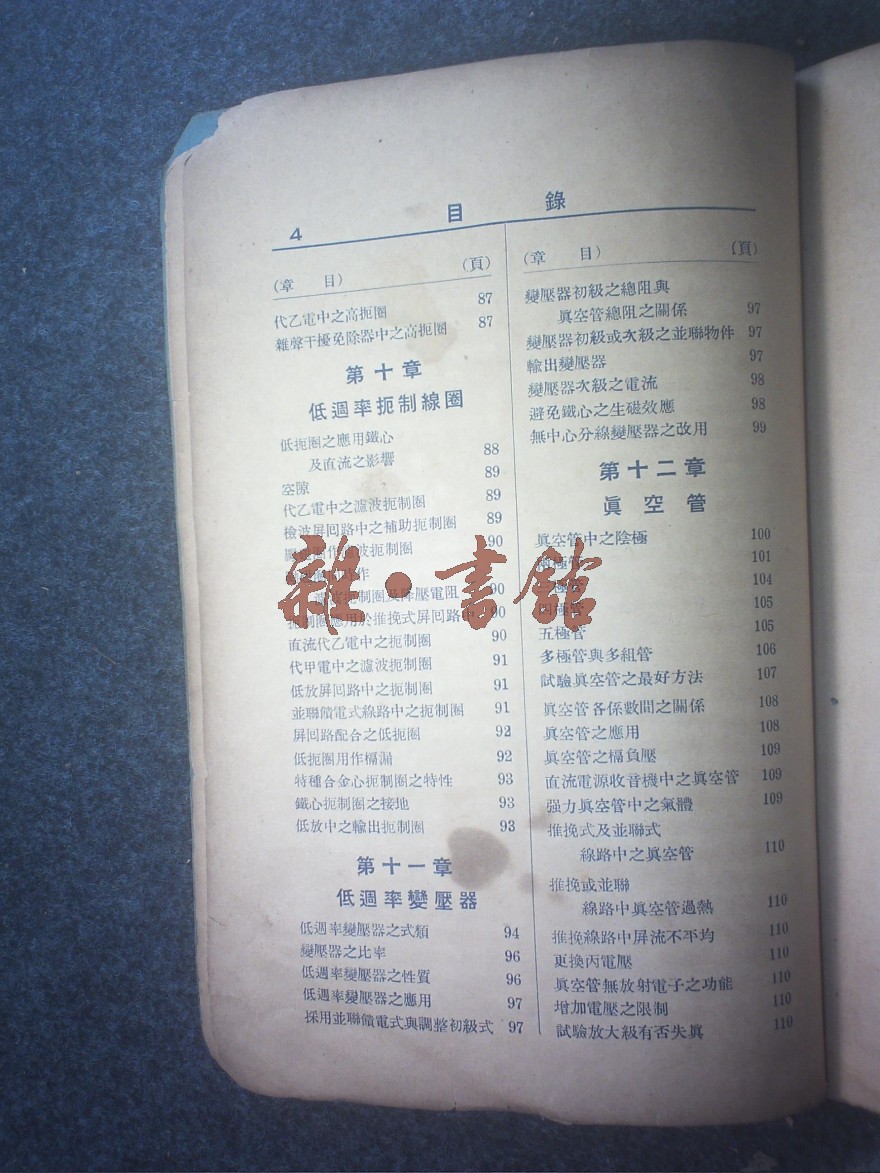 4 目 錄
(章 目) (頁)
代乙電中之高扼圈 87
雜聲干擾免除器中之高扼圈 87
第十章
低週率扼制線圈
低扼圈之應用鐵心
及直流之影響 88
空隙 89
代乙電中之濾波扼制圈 89
檢波屏回路中之補助扼制圈 89
波扼制圈 90
作
扼制圈及降壓電阻 90
扼制圈應用於推挽式屏回路中 90
直流代乙電中之扼制圈 90
代甲電中之濾波扼制圈 91
低放屏回路中之扼制圈 91
並聯饋電式線路中之扼制圈 91
屏回路配合之低扼圈 92
低扼圈用作槅漏 92
特種合金心扼制圈之特性 93
鐵心扼制圈之接地 93
低放中之輸出扼制圈 93
第十一章
低週率變壓器
低週率變壓器之式類 94
變壓器之比率 96
低週率變壓器之性質 96
低週率變壓器之應用 97
採用並聯饋電式與調整初級式 97
(章 目) (頁)
變壓器初級之總阻與
真空管總阻之關係 97
變壓器初級或次級之並聯物件 97
輸出變壓器 97
變壓器次級之電流 98
避免鐵心之生磁效應 98
無中心分線變壓器之改用 99
第十二章
眞空管
眞空管中之陰極 100
極管 101
極管 104
四極管 105
五極管 105
多極管與多組管 106
試驗眞空管之最好方法 107
眞空管各係數間之關係 108
眞空管之應用 108
眞空管之槅負壓 109
直流電源收音機中之眞空管 109
强力眞空管中之氣體 109
推挽式及並聯式
線路中之眞空管 110
推挽或並聯
線路中眞空管過熱 110
推挽線路中屏流不平均 110
更換丙電壓 110
眞空管無放射電子之功能 110
增加電壓之限制 110
試驗放大級有否失眞 110
雜·書館